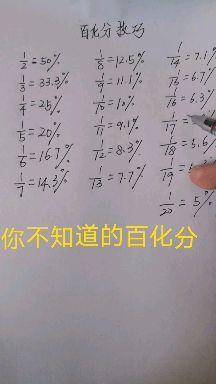 百化分技巧
1/2=50%
1/3=33.3%
1/4=25%
1/5=20%
1/6=16.7%
1/7=14.3%
1/8=12.5%
1/9=11.1%
1/10=10%
1/11=9.1%
1/12=8.3%
1/13=7.7%
1/14=7.1%
1/15=6.7%
1/16=6.3%
1/17=
1/18=5.6%
1/19=
1/20=5%
你不知道的百化分